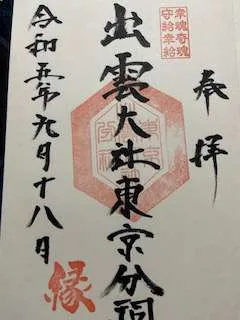 奉拝
幸魂奇魂
守給幸給
出雲大社東京分祠
令和五年元月十八日
縁